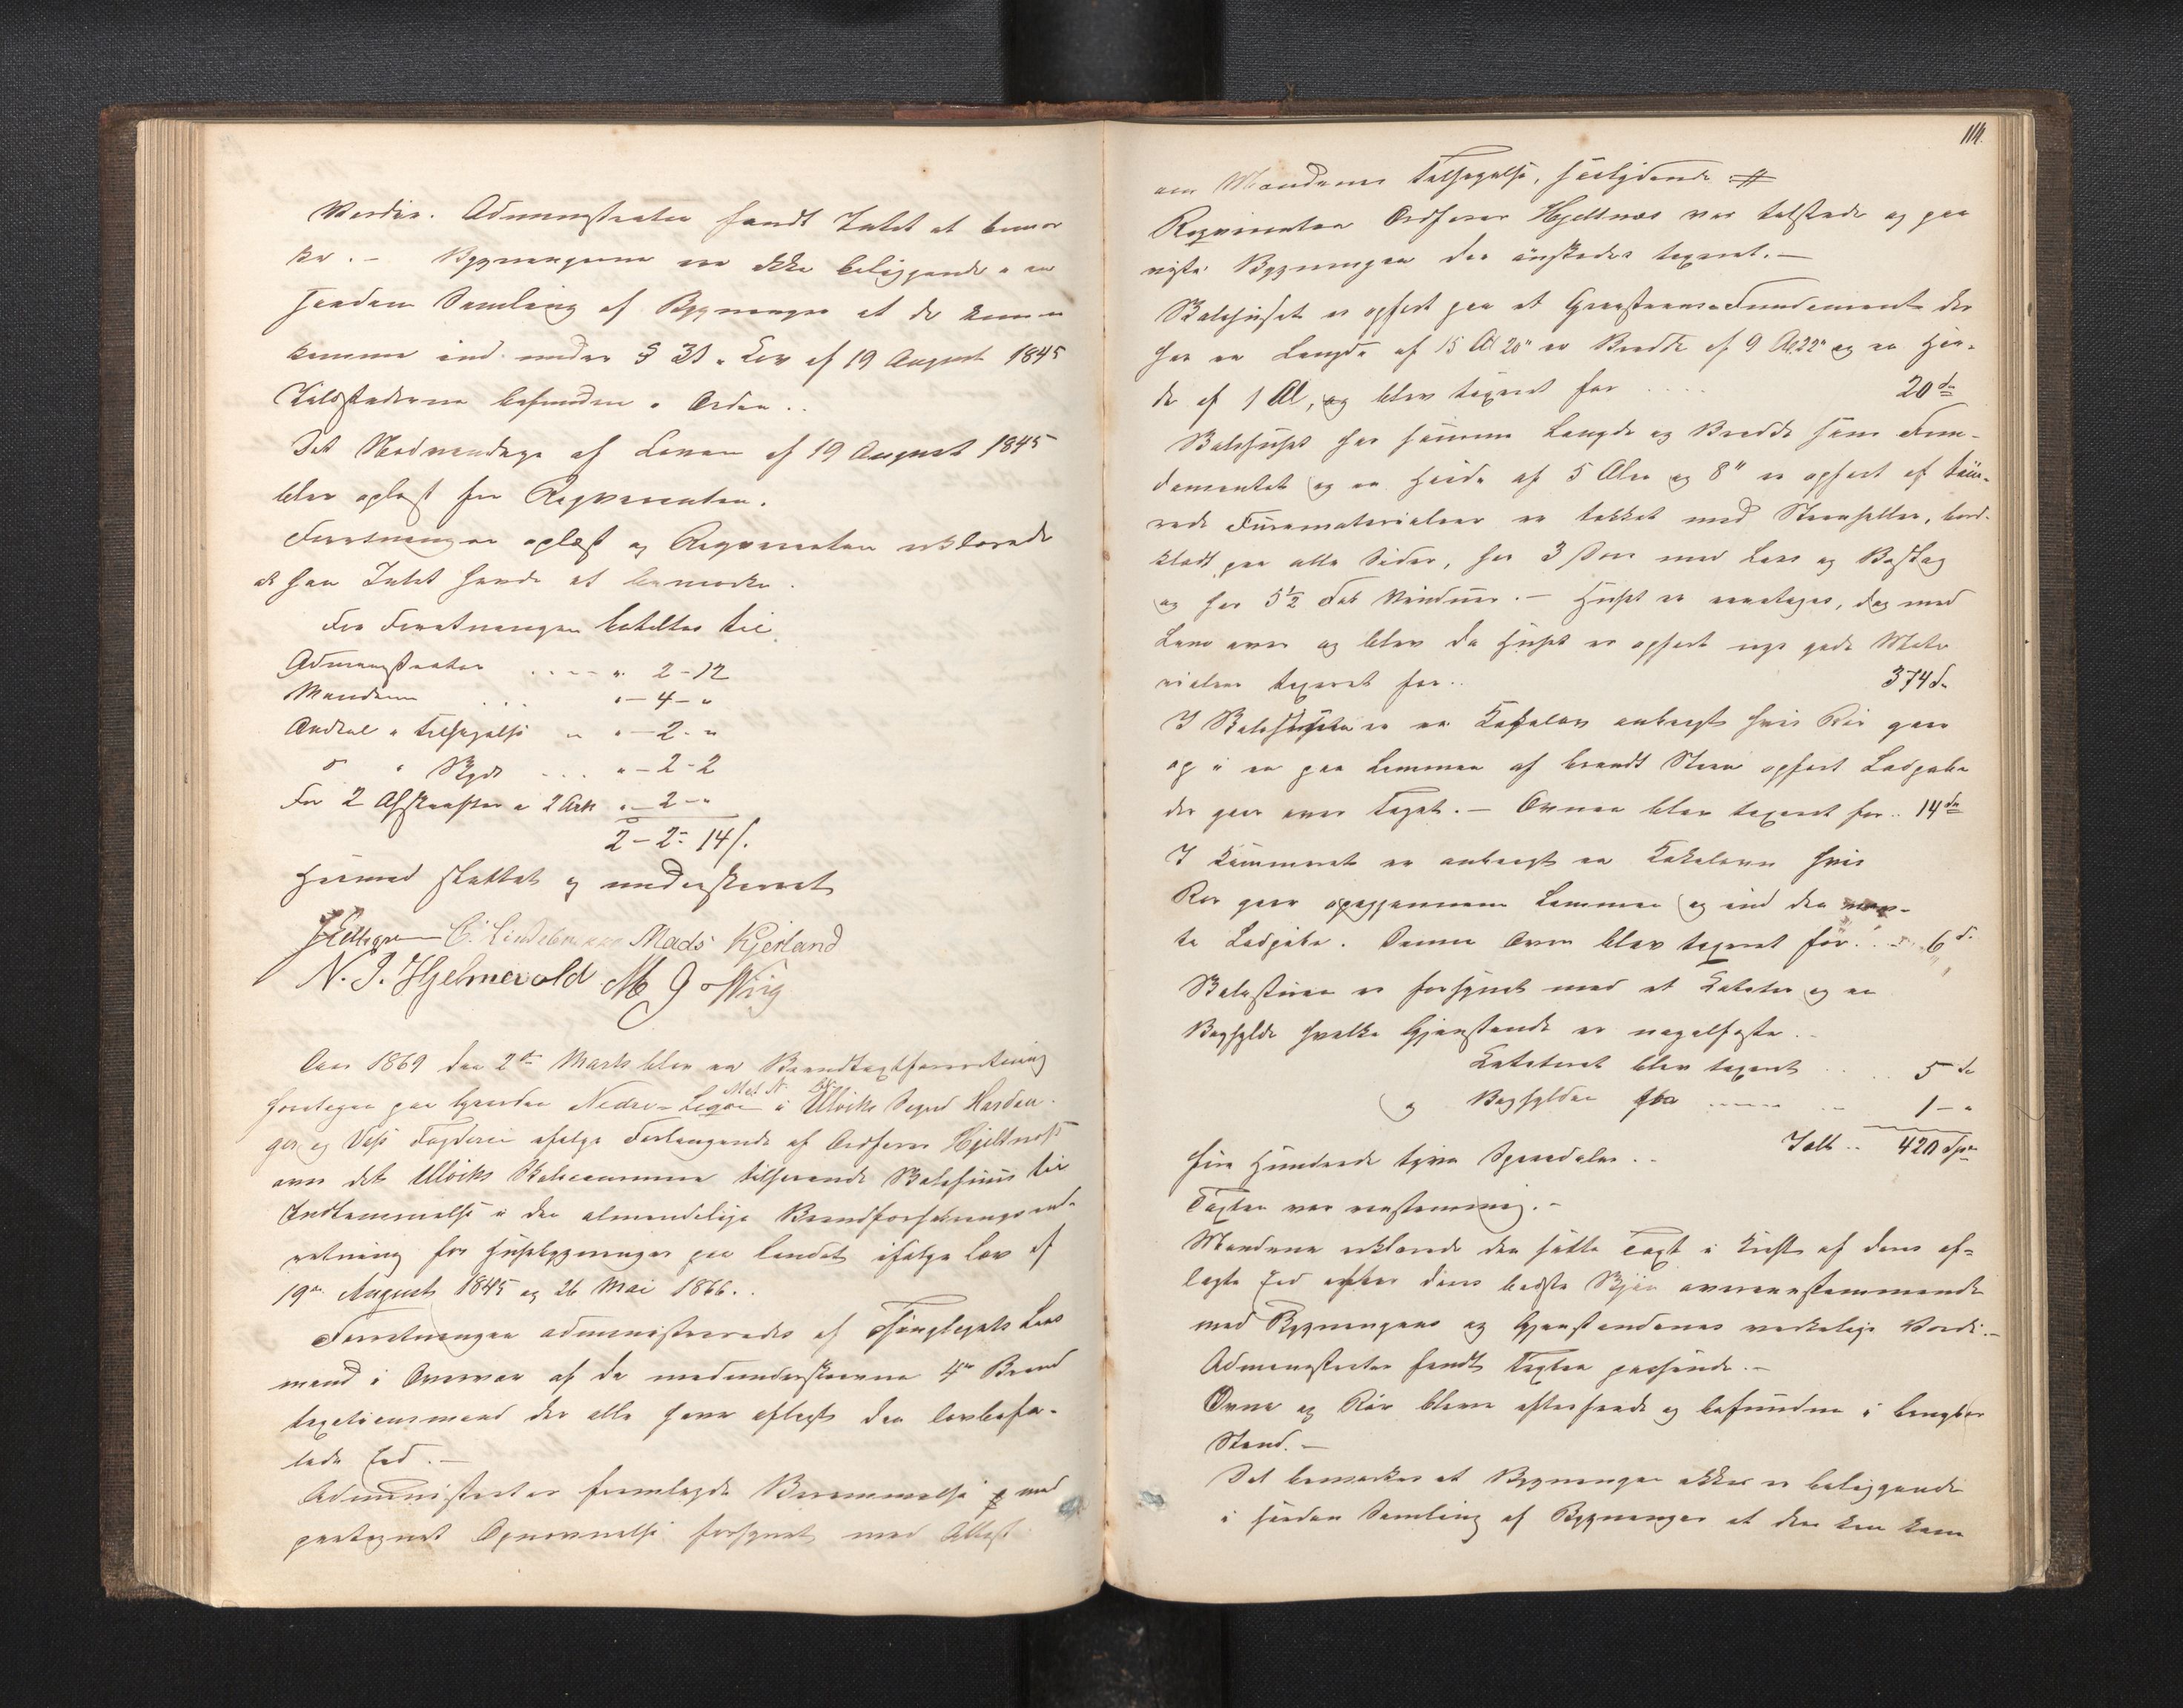 Værdie. Administrator fandt Intet at bemær
ke. - Bygningerne ere ikke beliggende i en
saadan Samling af Bygninger at de kunne
komme ind under § 31 i Lov af 19 August 1845
Ildstederne befunden i Orden..
Det Nødvendige af Loven af 19 August 1845
blev oplæst for Reqvirenten.
Forretningen oplæst og Reqvirenten erklærede
at han Intet havde at bemærke.
For Forretningen betaltes til
Administrator .... " 2-12
Mændene ... "-4-"
Andeel i Tilsigelse " "-2-"
do " Skyds ... "-2-2
For 2 Afskrifter a 2 Ark "-2-"
2-2-14 s.
Hermed sluttet og underskrevet
C. Lindebrække Mads Kjerland
N. J. Hjelmevold M J Wiig
Aar 1869 den 2den Marts blev en Brandtaxtforretning
foretagen paa Gaarden Nedre-Leqve Mat N. i Ulviks Sogn Hardan-
ger og Voss Fogderie ifølge Forlangende af Ordfører Hjeltnæs
over det Ulviks Skolecommune tilhørende Skolehuus til
Indlemmelse i den almindelige Brandforsikringsind-
retning for Huusbygninger paa Landet ifølge Lov af
19de August 1845 og 26 Mai 1866..
Forretningen administreredes af Thinglagets Lens
mand i Overvær af de medunderskrevne 4re Brand
taxationsmænd der alle have aflagt den lovbefa-
lede Ed. -
Administrator fremlagde Berammelse med
paategnet Opnævnelse forsynet med Attest
114.
om Mændenes Tilsigelse, saalydende
Reqvirenten Ordfører Hjeltnæs var tilstede og paa
viste Bygningen der ønskedes taxeret. -
Skolehuset er opført paa et Graasteens-Fundament der
har en Længde af 15 Al 20" en Bredde af 9 Al. 22" og en Høi-
de af 1 Al, og blev taxeret for .... 20 dr
Skolehuset har samme Længde og Bredde som Fun-
damentet og en Høide af 5 Alen og 8" er opført af tøm-
rede Furumaterialier er tækket med Steenheller, bord-
klædt paa alle Sider, har 3 Døre med Laas og Beslag
og har 5½ Fab Vinduer. - Huset er eenetages, dog med
Lem over og blev da Huset er opført nye gode Mate
rialier taxeret for.. 374 d.
I Skolestuen er en Kakelovn anbragt hvis Rør gaar
op i en paa Lemmen af brændt Steen opført Ladpibe
der gaar over Taget. - Ovnen blev taxeret for.. 14 dr
I Kammeret er anbragt en Kakelovn hvis
Rør gaar opigjennem Lemmen og ind den næv-
te Ladpibe. Denne Ovn blev taxeret for.. 6 d.
Skolestuen er forsynet med et Katheter og en
Boghylde hvilke Gjenstande er nagelfaste..
Katheteret blev taxeret .. 5 dr
og Boghylden for .... 1-"
Ialt .. 420 Spdr
fire Hundrede tyve Speciedaler..
Taxten var eenstemmig. -
Mændene erklærede den satte Taxt i Kraft af deres af-
lagte Ed efter deres bedste Skjøn overeenstemmende
med Bygningens og Gjenstandenes verkelige Værdi. -
Administrator fandt Taxten passende. -
Ovne og Rør bleve efterseede og befunden i brugbar
Stand. -
Det bemærkes at Bygningen ikke er beliggende
i saadan Samling af Bygninger at den kan kom